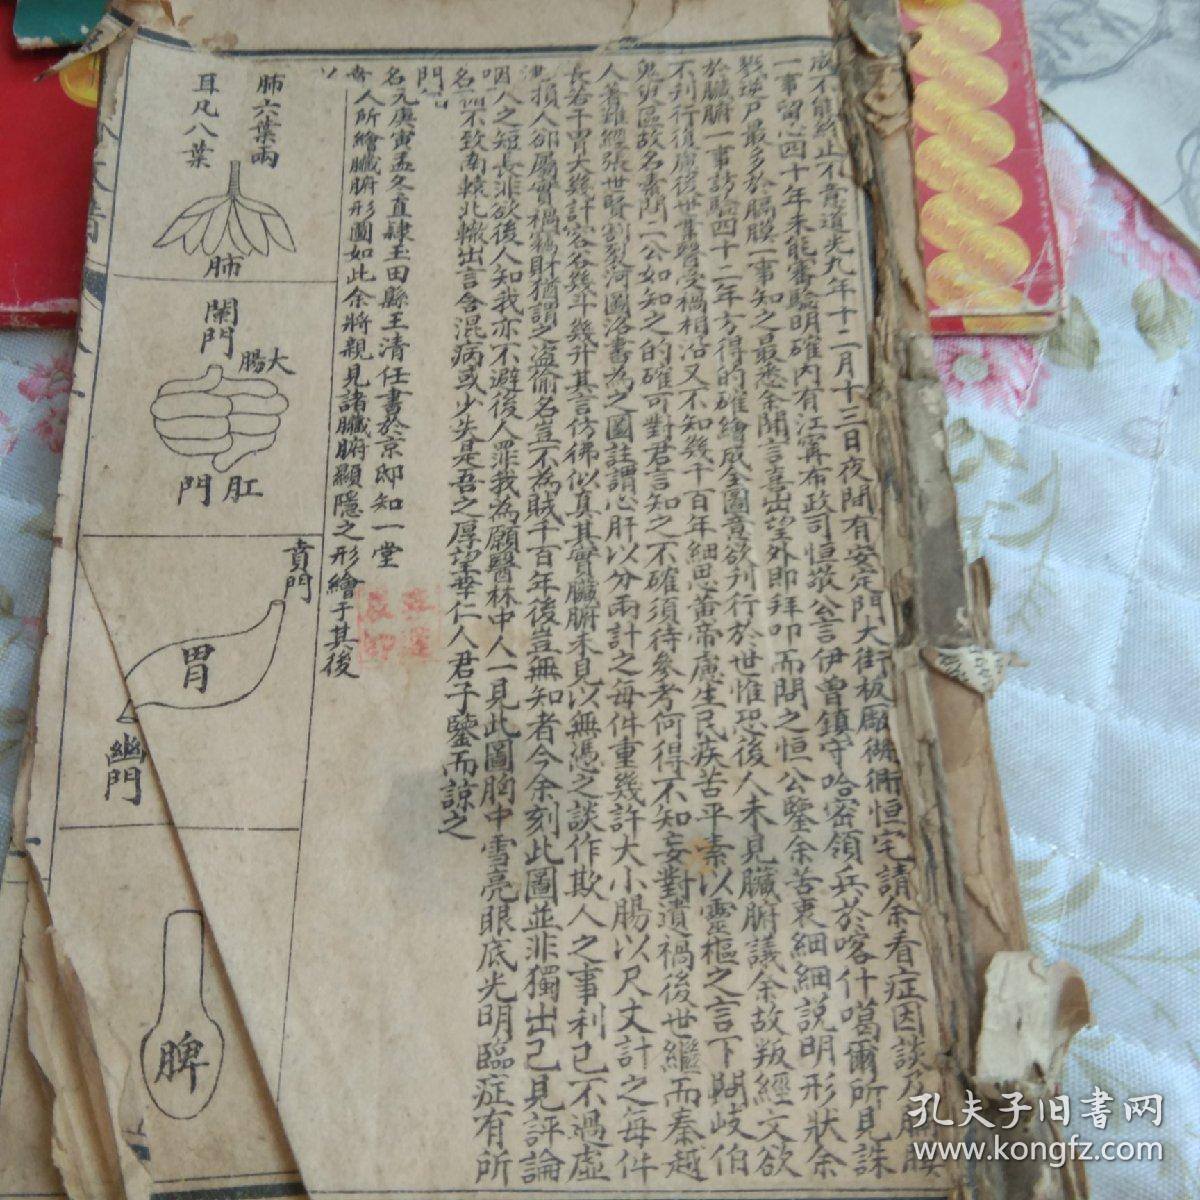 成不能終止不意道光九年十二月十三日夜間有安定門大街板廠衚衕恒宅請余看症因談及膈膜
一事留心四十年未能審驗明確內有江寧布政司恒敬公言伊曾鎮守哈密領兵於喀什噶爾所見誅
戮逆尸最多於膈膜一事知之最悉余聞言喜出望外即拜叩而問之恒公鑒余苦衷細細說明形狀余
於臟腑一事訪驗四十二年方得的確繪成全圖意欲刊行於世惟恐後人未見臟腑議余故叛經文欲
不刊行復慮後世業醫受禍相沿又不知幾千百年細思黃帝慮生民疾苦平素以靈樞之言下問岐伯
鬼臾區故名素問二公如知之的確可對君言知之不確須待參考何得不知妄對遺禍後世繼而秦越
人著難經張世賢割裂河圖洛書為之圖註謂心肝以分兩計之每件重幾許大小腸以尺丈計之每件
長若干胃大幾許容谷幾斗幾升其言仿佛似真其實臟腑未見以無憑之談作欺人之事利己不過虛
損人卻屬實禍竊財猶謂之盜偷名豈不為賊千百年後豈無知者今余刻此圖並非獨出己見評論
人之短長非欲後人知我亦不避後人罪我為願醫林中人一見此圖胸中雪亮眼底光明臨症有所
不致南轅北轍出言含混病或少失是吾之厚望幸仁人君子鑒而諒之
庚寅孟冬直隸玉田縣王清任書於京邸知一堂
人所繪臟腑形圖如此余將親見諸臟腑顯隱之形繪于其後
肺六葉兩
耳凡八葉
肺
闌門
大腸
肛門
賁門
胃
幽門
脾
孔夫子旧書网
www.kongfz.com